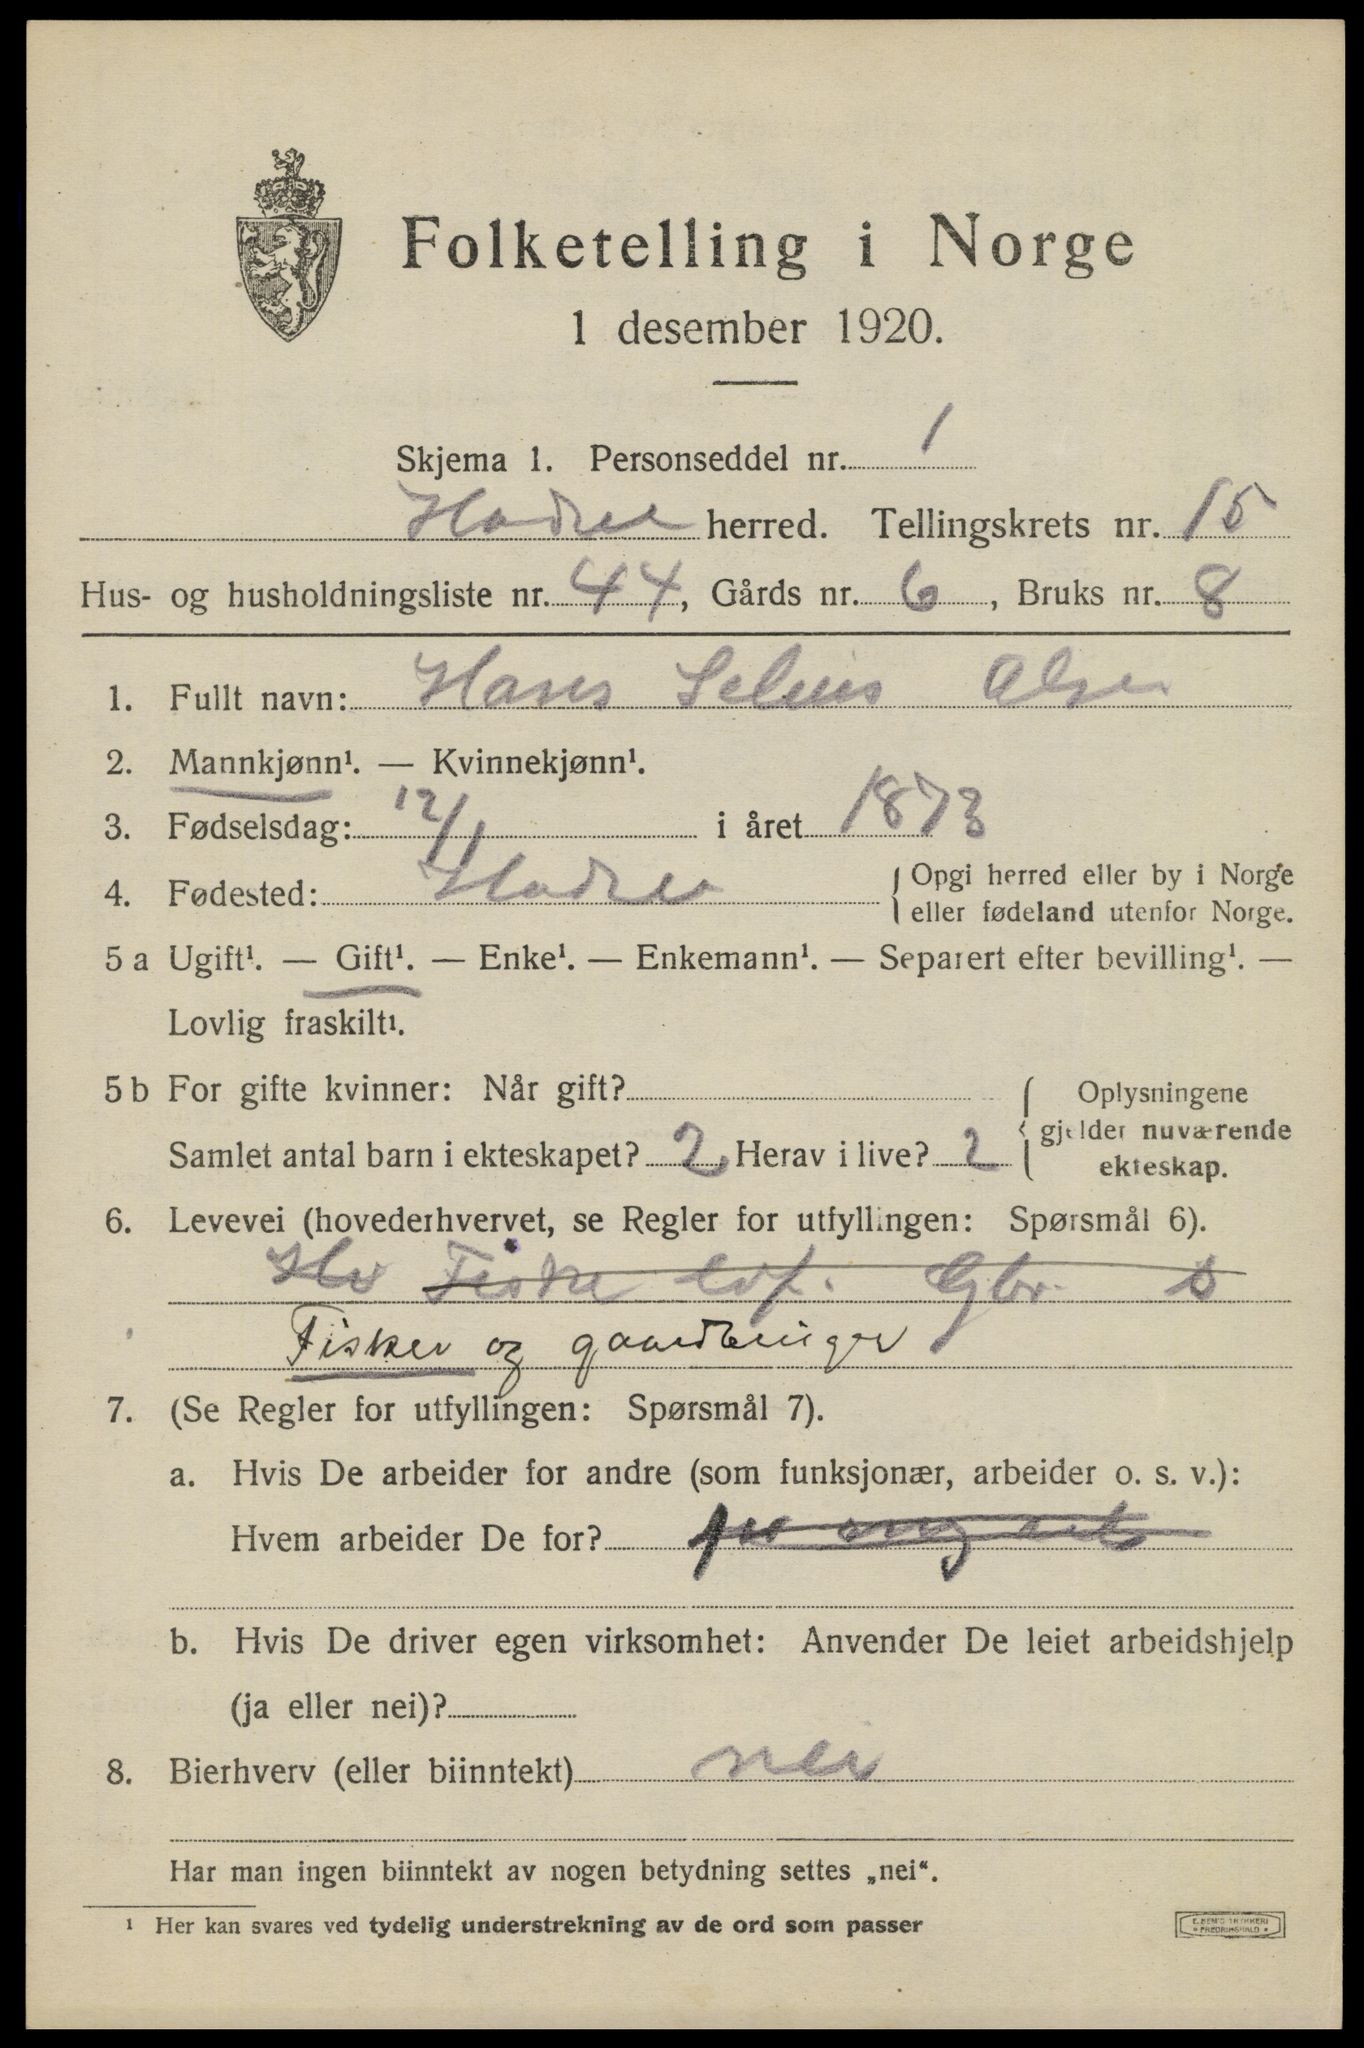 Folketelling i Norge
1 desember 1920.
Skjema 1. Personseddel nr. 1
Hadsel herred. Tellingskrets nr. 15
Hus- og husholdningsliste nr. 44, Gårds nr. 6, Bruks nr. 8
1. Fullt navn: Hans Selius Olsen
2. Mannkjønn¹. — Kvinnekjønn¹.
3. Fødselsdag: 12/1 i året 1873
4. Fødested: Hadsel { Opgi herred eller by i Norge
eller fødeland utenfor Norge.
5 a Ugift¹. — Gift¹. — Enke¹. — Enkemann¹. — Separert efter bevilling¹. —
Lovlig fraskilt¹.
5 b For gifte kvinner: Når gift? { Oplysningene
gjelder nuværende
Samlet antal barn i ekteskapet? 2 Herav i live? 2 ekteskap.
6. Levevei (hovederhvervet, se Regler for utfyllingen: Spørsmål 6).
Fiske Gbr. S
Fisker og gaardbruger
7. (Se Regler for utfyllingen: Spørsmål 7).
a. Hvis De arbeider for andre (som funksjonær, arbeider o. s. v.):
Hvem arbeider De for?
b. Hvis De driver egen virksomhet: Anvender De leiet arbeidshjelp
(ja eller nei)?
8. Bierhverv (eller biinntekt) nei
Har man ingen biinntekt av nogen betydning settes „nei“.
¹ Her kan svares ved tydelig understrekning av de ord som passer
E. SEM'S TRYKKERI
FREDRIKSHALD